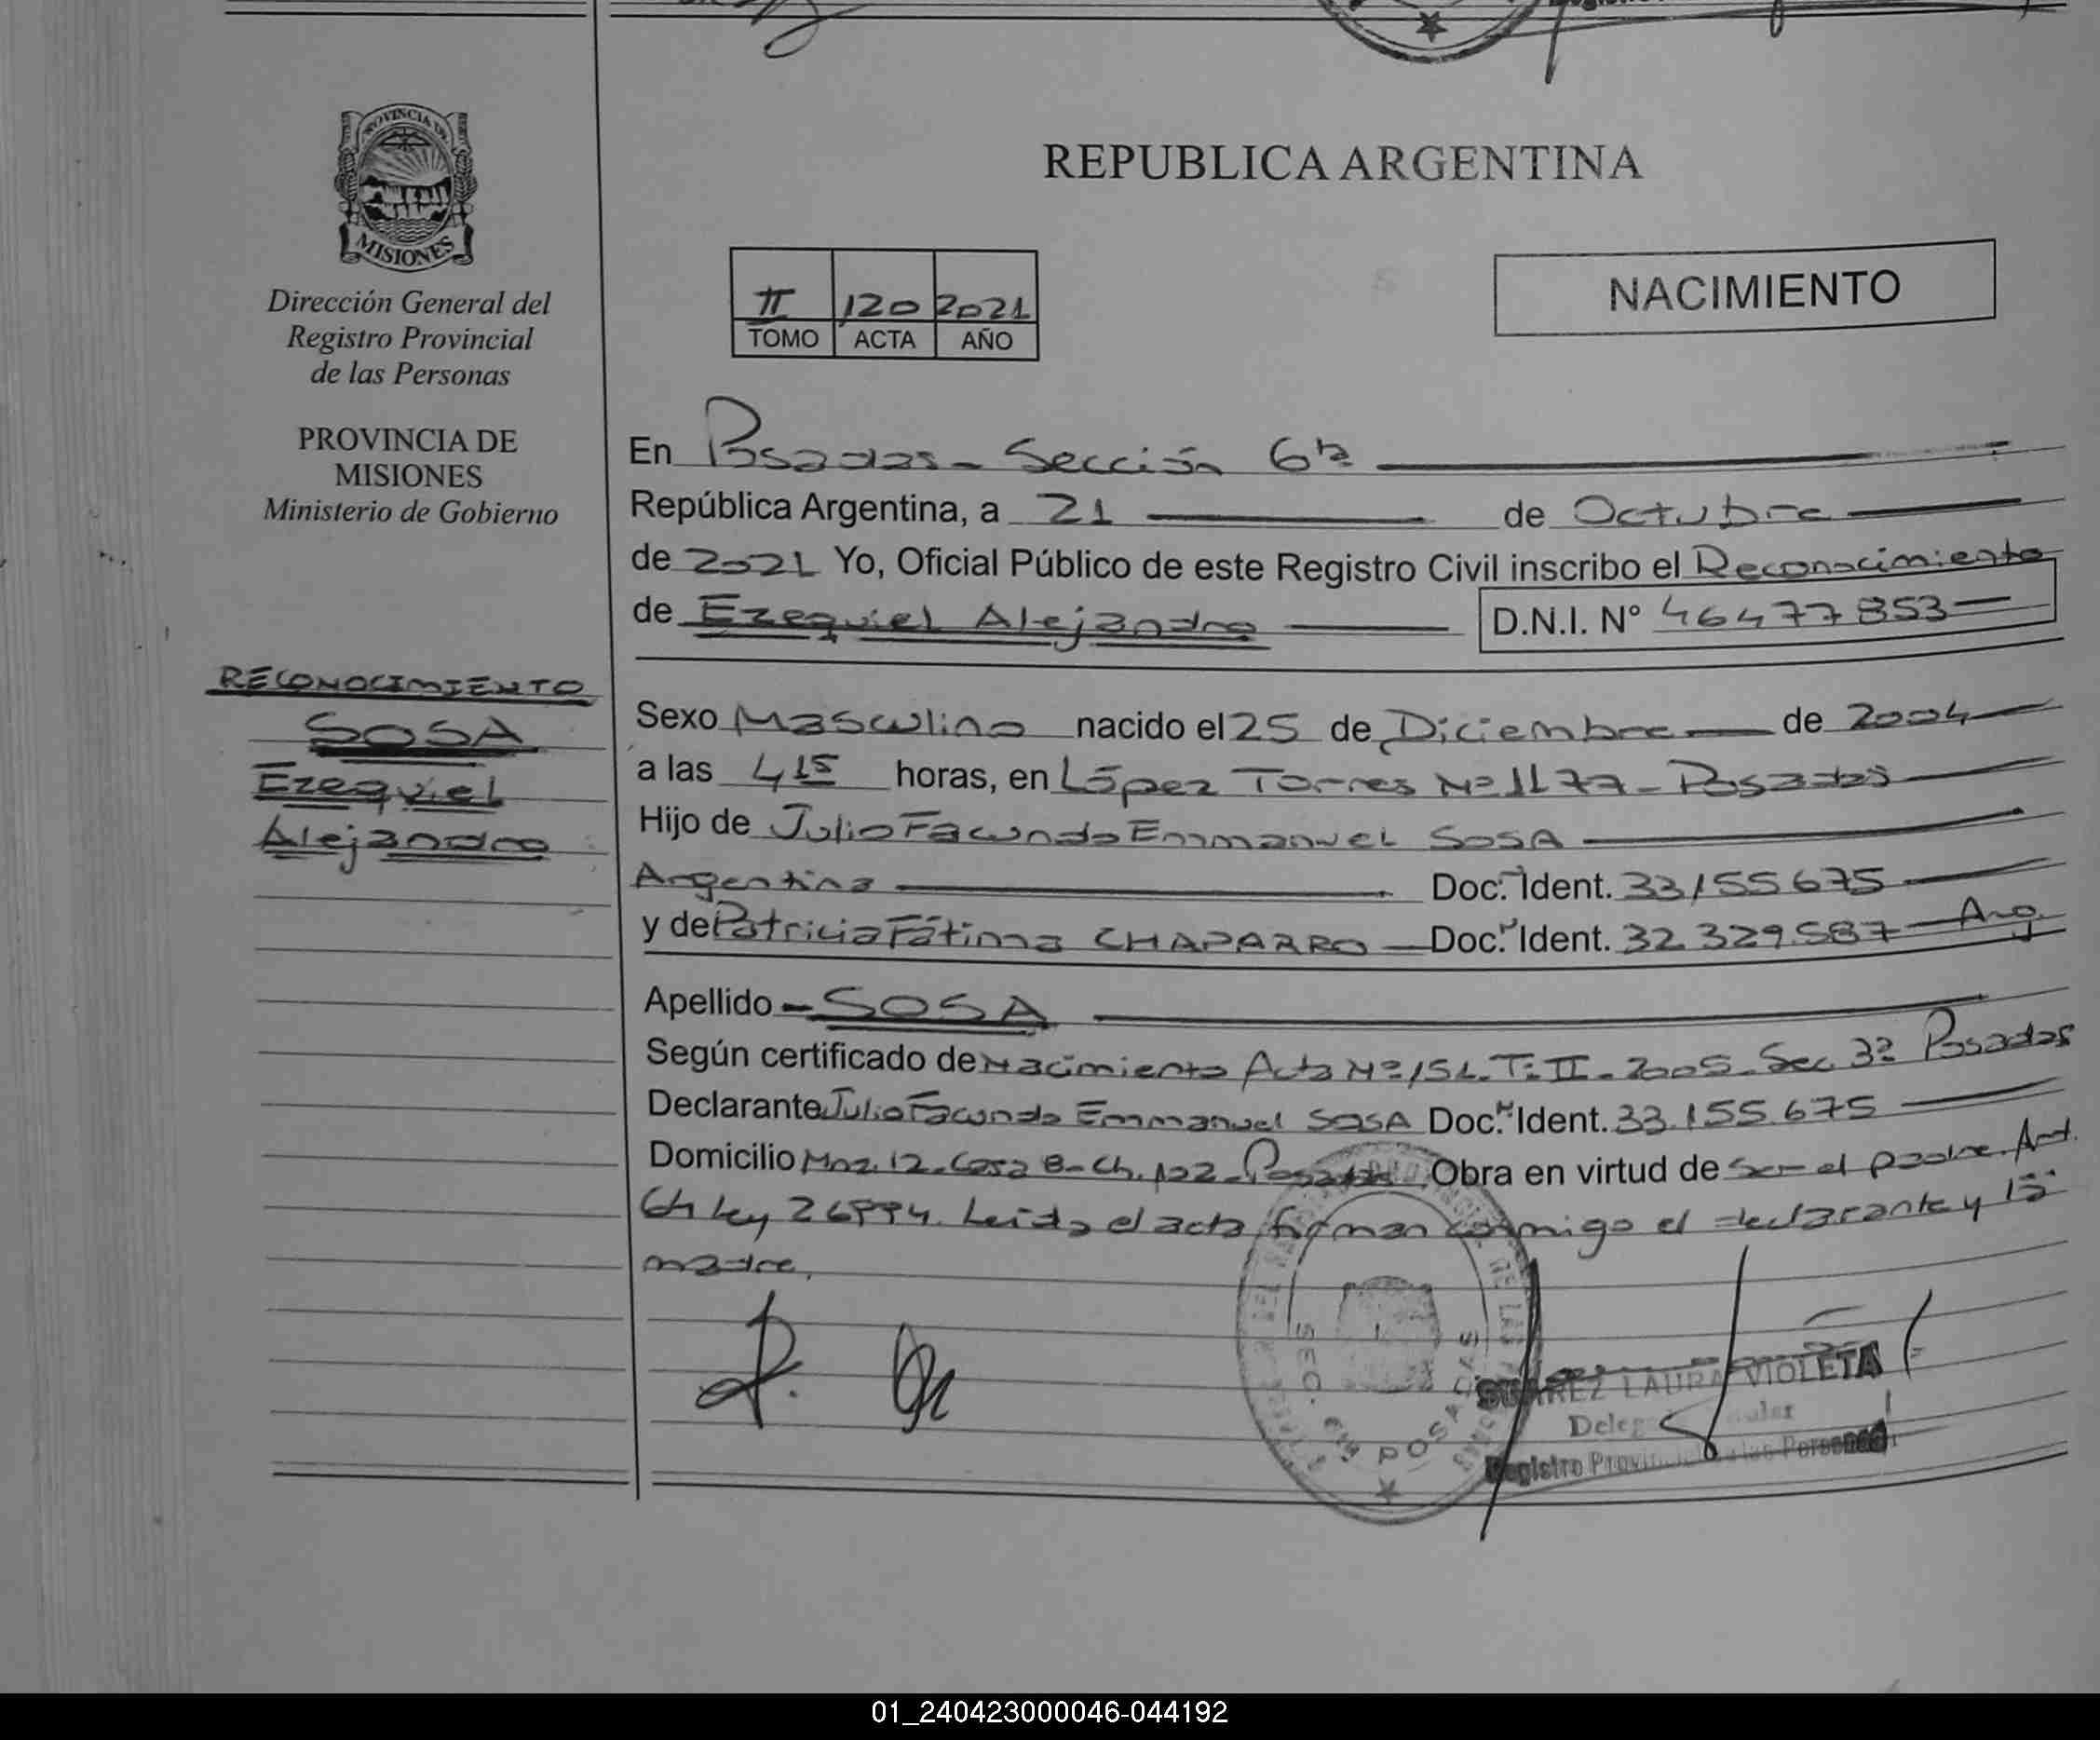 PROVINCIA DE
MISIONES
Dirección General del
Registro Provincial
de las Personas
PROVINCIA DE
MISIONES
Ministerio de Gobierno
RECONOCIMIENTO
SOSA
Ezequiel
Alejandro
REPUBLICA ARGENTINA
II 120 2021
TOMO ACTA AÑO
NACIMIENTO
En Posadas - Sección 6ta
República Argentina, a 21 de Octubre
de 2021 Yo, Oficial Público de este Registro Civil inscribo el Reconocimiento
de Ezequiel Alejandro D.N.I. N° 46477853
Sexo Masculino nacido el 25 de Diciembre de 2004
a las 4 15 horas, en López Torres Nº 1177 - Posadas
Hijo de Julio Facundo Emmanuel SOSA
Argentina Doc. Ident. 33155675
y de Patricia Fátima CHAPARRO Doc. Ident. 32.329.587 Arg.
Apellido - SOSA
Según certificado de Nacimiento Acta Nº 151. T: II - 2005 - Sec. 3ª Posadas
Declarante Julio Facundo Emmanuel SOSA Doc. Ident. 33.155.675
Domicilio Mnz. 12 - Casa 8 - Ch. 122 - Posadas Obra en virtud de ser el padre. Art.
64 ley 26994. Leída el acta firman conmigo el declarante y la
madre.
POSADAS
SUAREZ LAURA VIOLETA
Registro Provincial de las Personas
01_240423000046-044192